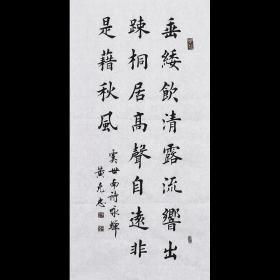 垂緌飲清露流響出
疎桐居高聲自遠非
是藉秋風
虞世南詩詠蟬
黄克忠